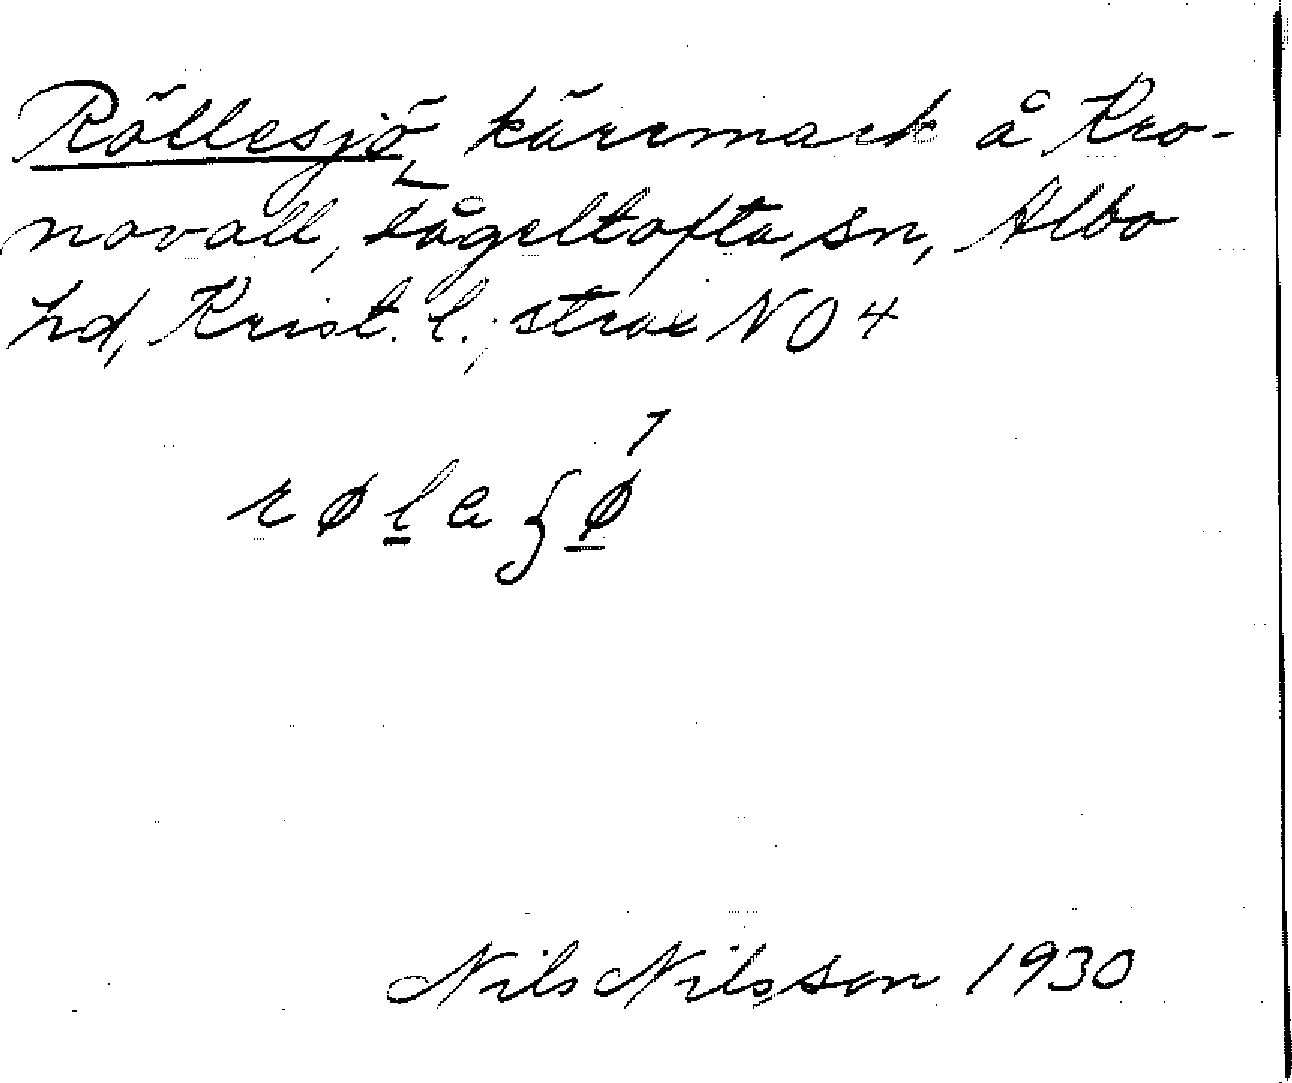 Röllesjö, kärrmark å Kro-
novall, Fågeltofta sn, Albo
hd, Krist. l.; strax NO 4
Nils Nilsson 1930